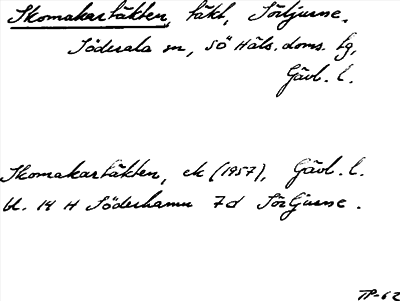 Skomakartäkten, täkt, Sörljusne.
Söderala sn, SÖ Häls. doms. tg,
Gävl. l.
Skomakartäkten, ek (1957), Gävl. l.
bl. 14 H Söderhamn 7d Sörljusne.
TP-62